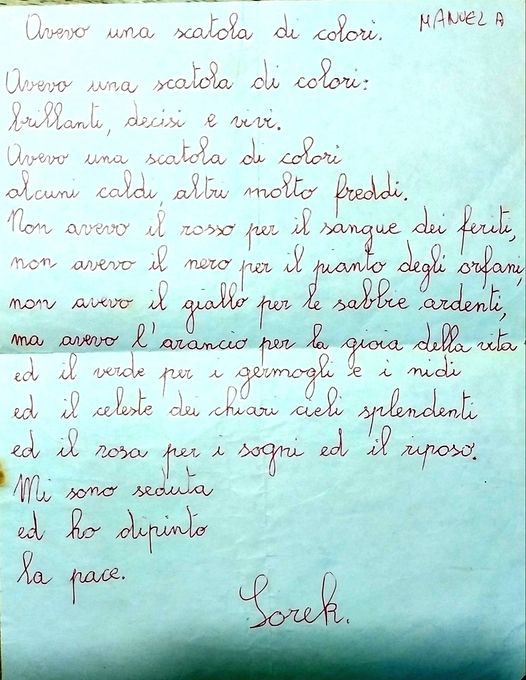 Avevo una scatola di colori. MANUELA
Avevo una scatola di colori:
brillanti, decisi e vivi.
Avevo una scatola di colori
alcuni caldi, altri molto freddi.
Non avevo il rosso per il sangue dei feriti,
non avevo il nero per il pianto degli orfani,
non avevo il giallo per le sabbie ardenti,
ma avevo l'arancio per la gioia della vita
ed il verde per i germogli e i nidi
ed il celeste dei chiari cieli splendenti
ed il rosa per i sogni ed il riposo.
Mi sono seduta
ed ho dipinto
la pace.
Sorek.